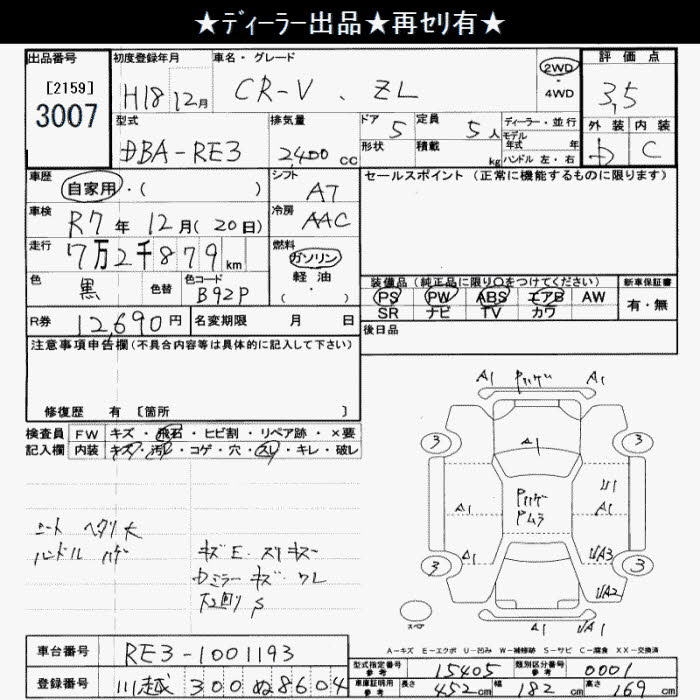 ★ディーラー出品★再セリ有★
出品番号 初度登録年月 車名・グレード 2WD・4WD 評価点
[2159] 3007 H18 12月 CR-V . ZL 3,5
型式 排気量 ドア 5 定員 5人 ディーラー・並行 外装 内装
DBA-RE3 2,400cc 形状 積載 kg モデル年式 年 ハンドル 左・右 D C
車歴 自家用・( ) シフト AT セールスポイント (正常に機能するものに限ります)
車検 R7年 12月(20日) 冷房 AAC
走行 7万2千879km 燃料 ガソリン
色 黒 色替 色コード B92P 軽油・( )
装備品(純正品に限り○をつけてください) 新車保証書
PS PW ABS エアB AW 有・無
SR ナビ TV カワ
R券 12,690円 名変期限 月 日 後日品
注意事項申告欄(不具合内容等は具体的に記入して下さい)
修復歴 有 [箇所 ]
検査員 FW キズ・飛石・ヒビ割・リペア跡・×要
記入欄 内装 キズ・汚れ・コゲ・穴・スレ・キレ・破レ
A1 Pハゲ A1
3 3
A1
U1
A1 Pハゲ Pムラ A1
A1 U/A3
3 3
U/A2
スペア A1 U/A1
シート ヘタリ大
ハンドル ハゲ
キズE. スリキズ
Dミラーキズ・ワレ
下回りS
A-キズ E-エクボ U-凹み W-補修跡 S-サビ C-腐食 XX-交換済
車台番号 RE3-1001193
登録番号 川越 300 ぬ 8604
型式指定番号 参考 15405 類別区分番号 参考 0001
車庫証明用 参考 長さ 452cm 幅 182cm 高さ 169cm